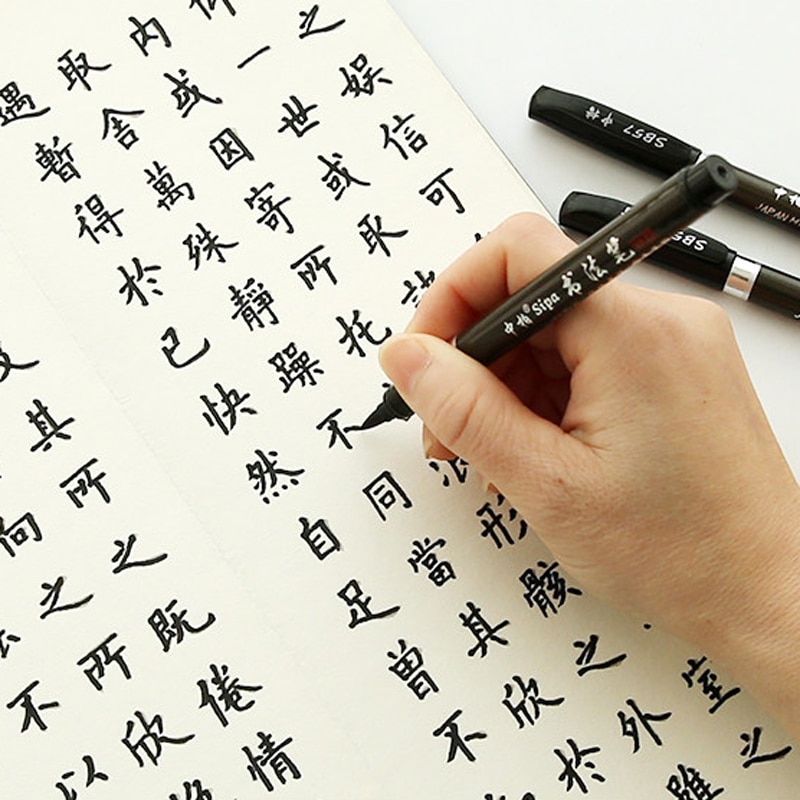 之娛信可
仰一世或取室之
內或因寄所托浪形骸之外雖
取舍萬殊靜躁不同當其欣於
遇暫得於已快然自足曾不
其所之既倦情
向之所欣
不以
中柏® Sipa 书法笔
中柏 SB57
JAPAN
SB57